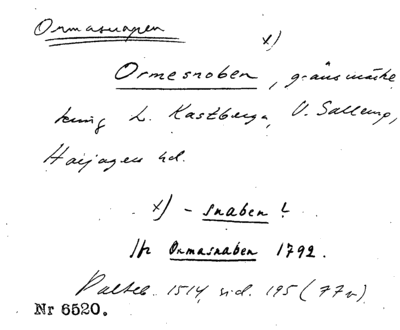 Ormasnapen
x)
Ormesnoben, gränsmärke
kring L. Kastberga, V. Sallerup,
Harjagers hd.
x) - snaben?
Jfr Ormasnaben 1792.
Palteb. 1514, sid. 195 (77v).
Nr 6520.